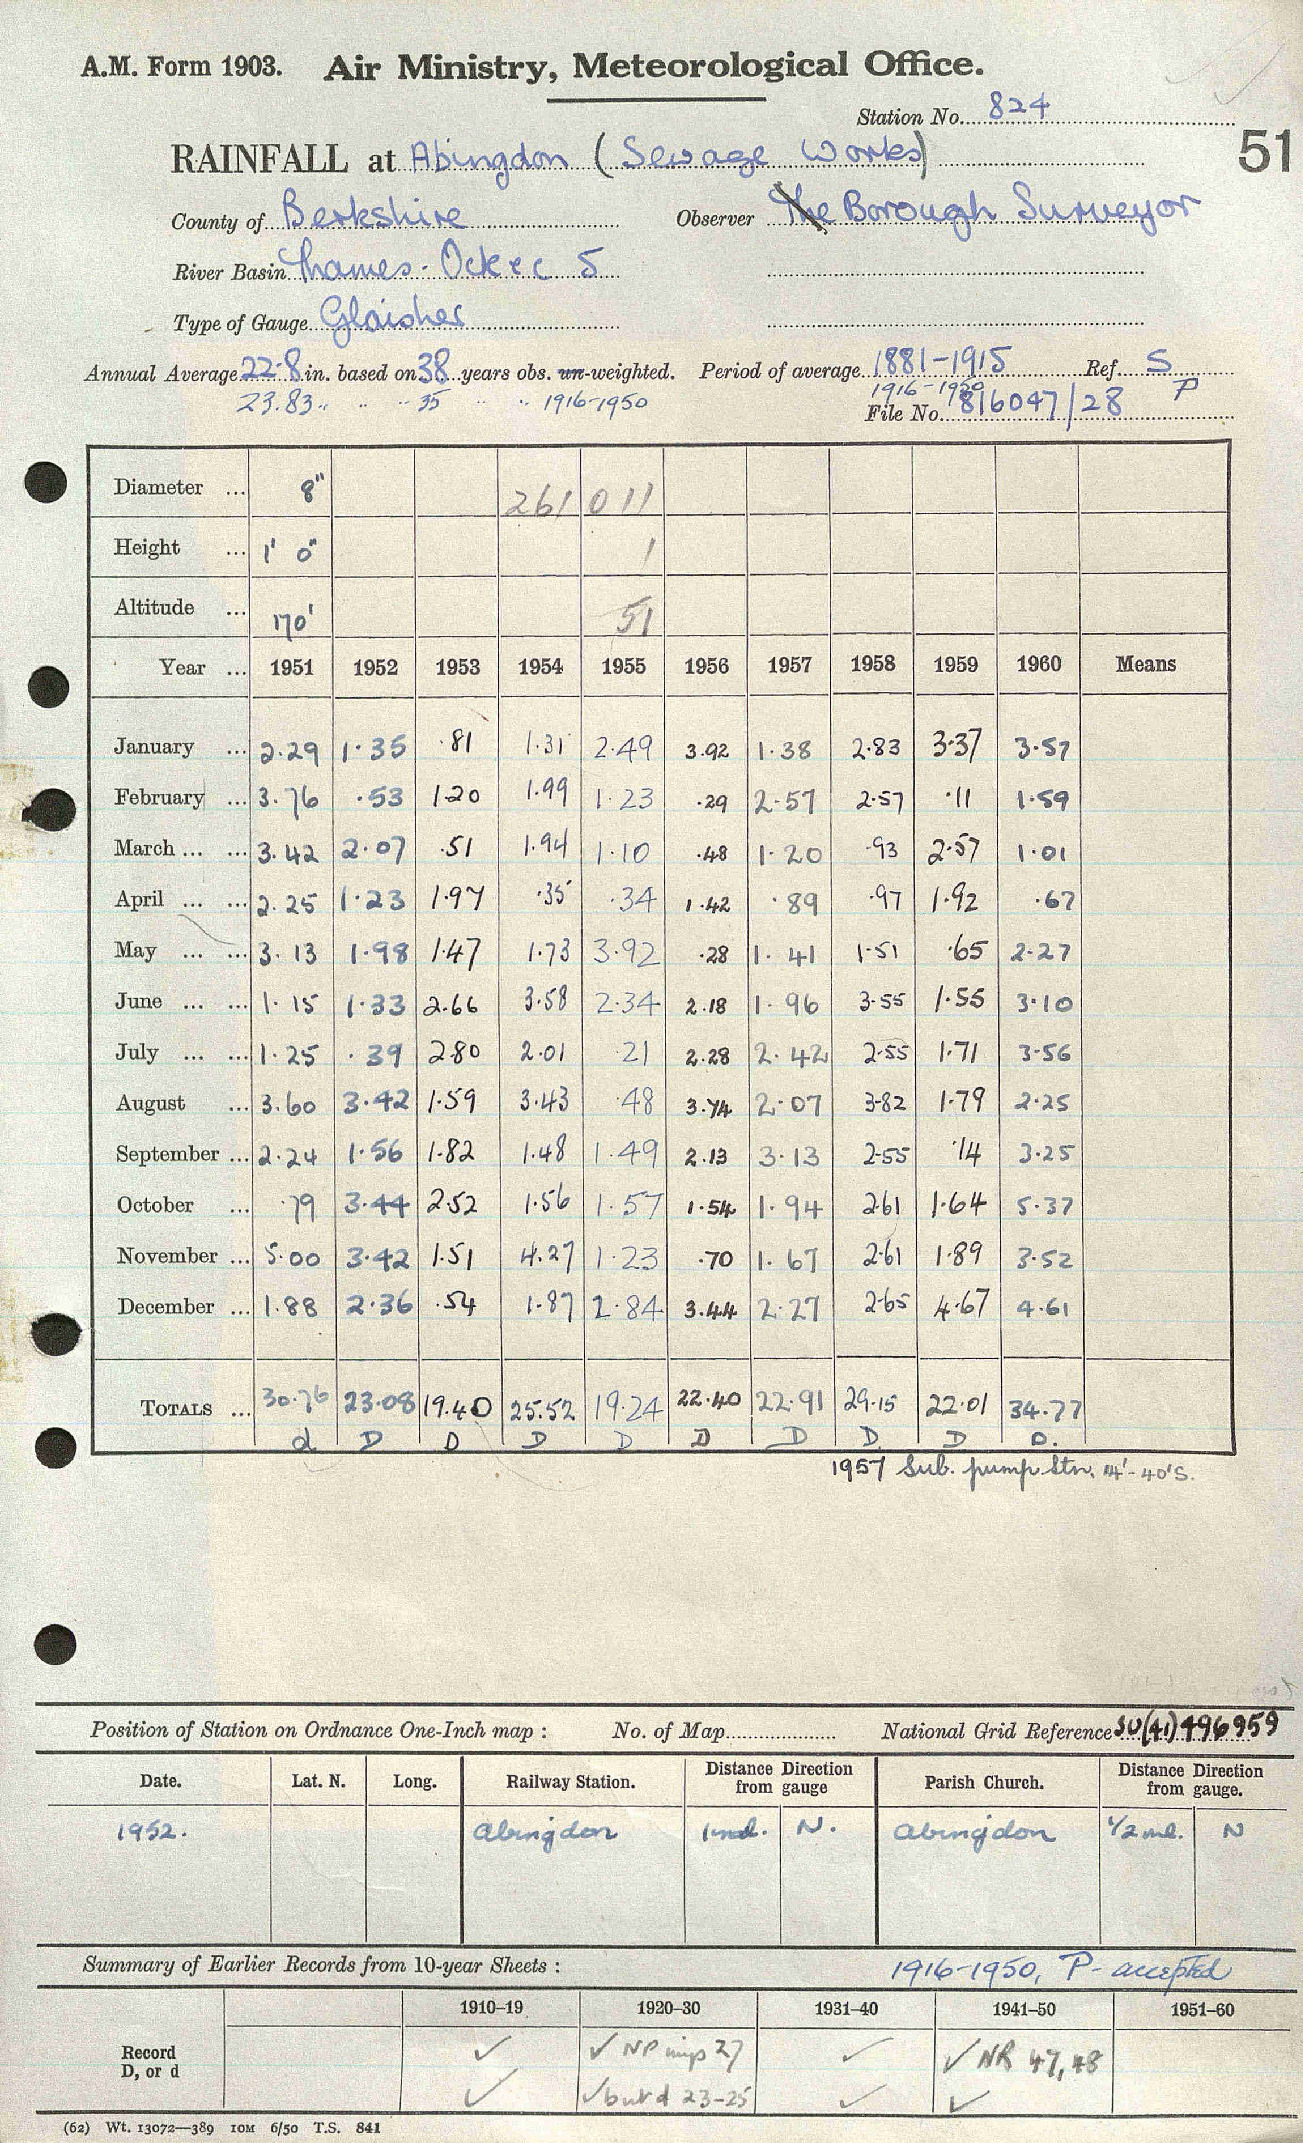 A.M. Form 1903. Air Ministry, Meteorological Office.
Station No. 824
51
RAINFALL at Abingdon (Sewage Works)
County of Berkshire Observer The Borough Surveyor
River Basin Thames - Ock 5
Type of Gauge Glaisher
Annual Average 22.8 in. based on 38 years obs. un-weighted. Period of average 1881-1915 Ref. S
23.83 " " " 35 " " 1916-1950 1916-1950 P
File No. 816047/28
Diameter ... 8" 261 011
Height ... 1' 0" 1
Altitude ... 170' 51
Year ... 1951 1952 1953 1954 1955 1956 1957 1958 1959 1960 Means
January ... 2.29 1.35 .81 1.31 2.49 3.92 1.38 2.83 3.37 3.57
February ... 3.76 .53 1.20 1.99 1.23 .29 2.57 2.57 .11 1.59
March ... ... 3.42 2.07 .51 1.94 1.10 .48 1.20 .93 2.57 1.01
April ... ... 2.25 1.23 1.97 .35 .34 1.42 .89 .97 1.92 .67
May ... ... 3.13 1.98 1.47 1.73 3.92 .28 1.41 1.51 .65 2.27
June ... ... 1.15 1.33 2.66 3.58 2.34 2.18 1.96 3.55 1.55 3.10
July ... ... 1.25 .39 2.80 2.01 .21 2.28 2.42 2.55 1.71 3.56
August ... 3.60 3.42 1.59 3.43 .48 3.74 2.07 3.82 1.79 2.25
September ... 2.24 1.56 1.82 1.48 1.49 2.13 3.13 2.55 .14 3.25
October ... .79 3.44 2.52 1.56 1.57 1.54 1.94 2.61 1.64 5.37
November ... 5.00 3.42 1.51 4.27 1.23 .70 1.67 2.61 1.89 3.52
December ... 1.88 2.36 .54 1.87 2.84 3.44 2.27 2.65 4.67 4.61
TOTALS ... 30.76 23.08 19.40 25.52 19.24 22.40 22.91 29.15 22.01 34.77
d D D D D D D D D D.
1957 Sub. pump Stn. 14'-40'S.
Position of Station on Ordnance One-Inch map : No. of Map National Grid Reference SU(41)496959
Date. Lat. N. Long. Railway Station. Distance from Direction gauge Parish Church. Distance from Direction gauge.
1952. Abingdon 1 ml. N. Abingdon 1/2 ml. N
Summary of Earlier Records from 10-year Sheets : 1916-1950, P- accepted
1910–19 1920–30 1931–40 1941–50 1951–60
Record ✓ ✓ NP imp 27 ✓ ✓ NR 47, 48
D, or d ✓ ✓ but d 23-25 ✓ ✓
(62) Wt. 13072—389 10M 6/50 T.S. 841